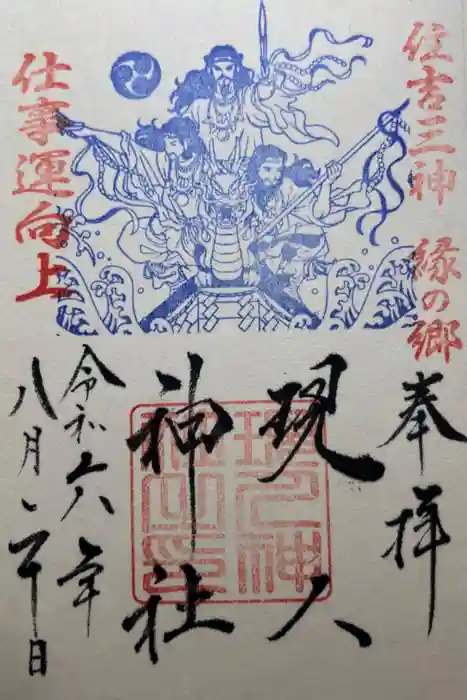 住吉三神 縁の郷
仕事運向上
奉拝
現人
神社
令和六年
八月二十日
現人神
社之印